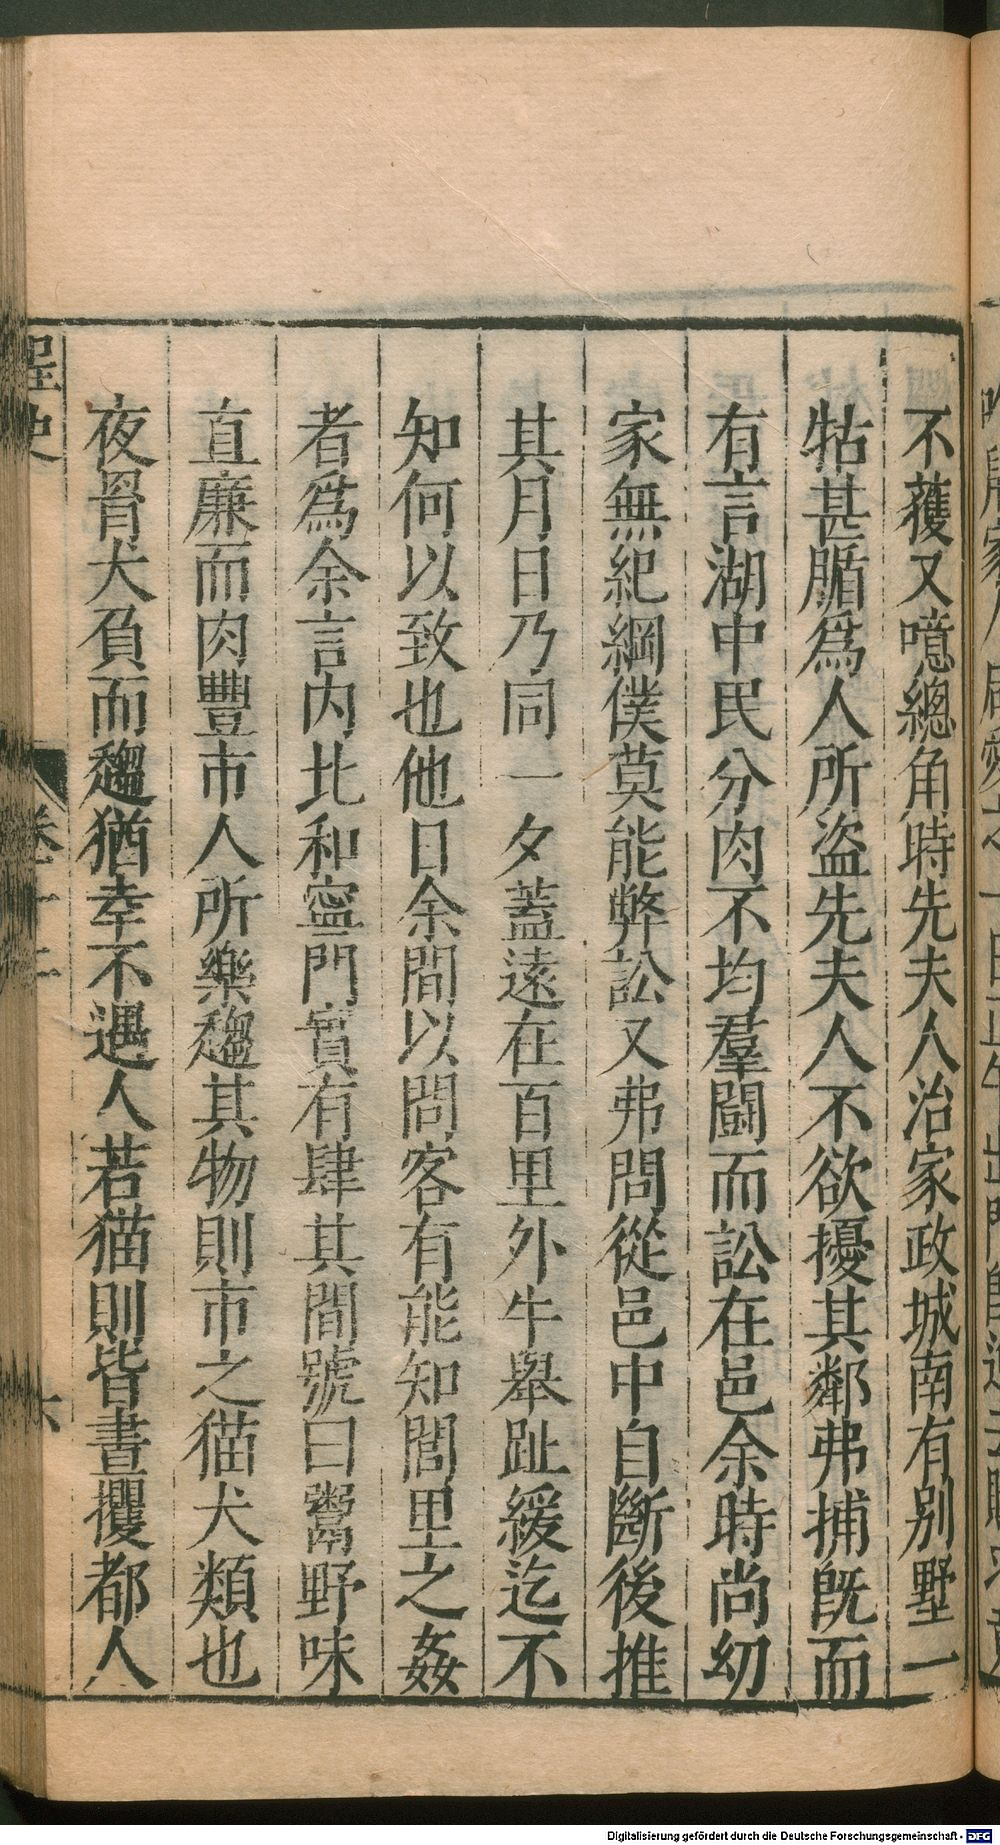 不獲又噫總角時先夫人治家政城南有别墅一
牯甚腯爲人所盜先夫人不欲擾其鄰弗捕旣而
有言湖中民分肉不均羣鬪而訟在邑余時尚幼
家無紀綱僕莫能弊訟又弗問從邑中自斷後推
其月日乃同一夕蓋遠在百里外牛舉趾緩迄不
知何以致也他日余間以問客有能知閭里之姦
者爲余言内北和寧門實有肆其間號曰鬻野味
直廉而肉豐市人所樂趨其物則市之猫犬類也
夜罥犬負而趨猶幸不遇人若猫則皆晝攫都人
桯史
卷十二
六
Digitalisierung gefördert durch die Deutsche Forschungsgemeinschaft - DFG